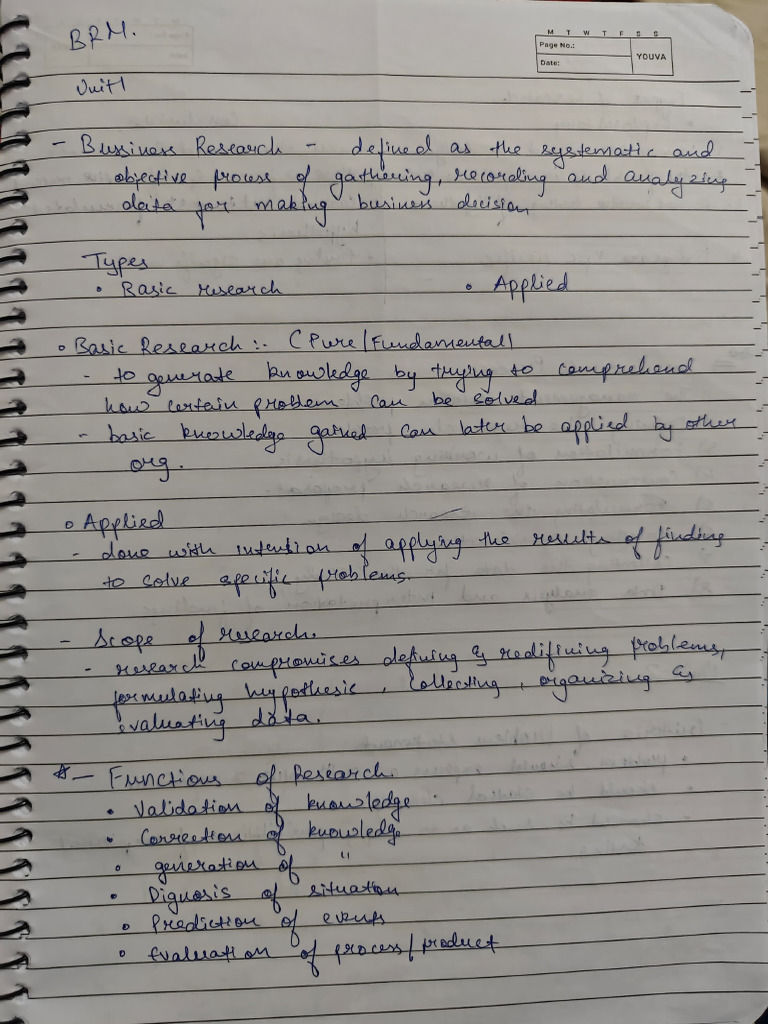 BRM.
M T W T F S S
Page No.:
Date:
YOUVA
Unit 1
- Bussiness Research - defined as the systematic and
objective process of gathering, recording and analyzing
data for making business decision
Types
• Basic research • Applied
• Basic Research :- (Pure/Fundamental)
- to generate knowledge by trying to comprehend
how certain problem can be solved
- basic knowledge gained can later be applied by other
org.
• Applied
- done with intention of applying the results of finding
to solve specific problems.
- Scope of research.
- research compromises defining & redifining problems,
formulating hypothesis, collecting, organizing &
evaluating data.
* - Functions of Research.
• Validation of knowledge
• Correction of knowledge
• generation of "
• Dignosis of situation
• Prediction of events
• Evaluation of process/product